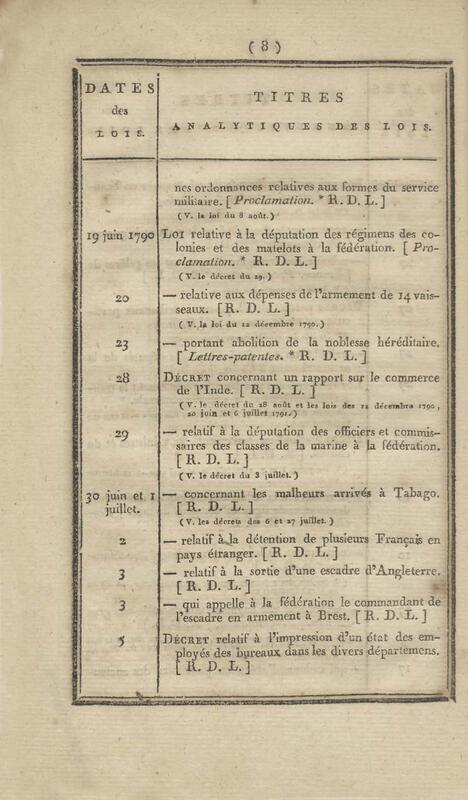 ( 8 )
DATES
des
LOIS.
TITRES
ANALYTIQUES DES LOIS.
nes ordonnances relatives aux formes du service
militaire. [ Proclamation. * R. D. L. ]
( V. la loi du 8 août. )
19 juin 1790 LOI relative à la députation des régimens des co-
lonies et des matelots à la fédération. [ Pro-
clamation. * R. D. L. ]
( V. le décret du 29. )
20 — relative aux dépenses de l'armement de 14 vais-
seaux. [ R. D. L. ]
( V. la loi du 12 décembre 1790. )
23 — portant abolition de la noblesse héréditaire.
[ Lettres-patentes. * R. D. L. ]
28 DÉCRET concernant un rapport sur le commerce
de l'Inde. [ R. D. L. ]
( V. le décret du 28 août et les lois des 12 décembre 1790,
20 juin et 6 juillet 1791. )
29 — relatif à la députation des officiers et commis-
saires des classes de la marine à la fédération.
[ R. D. L. ]
( V. le décret du 3 juillet. )
30 juin et 1 — concernant les malheurs arrivés à Tabago.
juillet. [ R. D. L. ]
( V. les décrets des 6 et 27 juillet. )
2 — relatif à la détention de plusieurs Français en
pays étranger. [ R. D. L. ]
3 — relatif à la sortie d'une escadre d'Angleterre.
[ R. D. L. ]
3 — qui appelle à la fédération le commandant de
l'escadre en armement à Brest. [ R. D. L. ]
5 DÉCRET relatif à l'impression d'un état des em-
ployés des bureaux dans les divers départemens.
[ R. D. L. ]